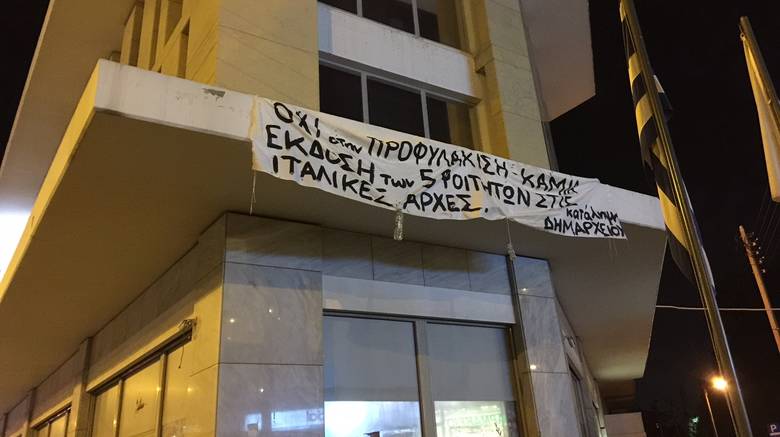 ΟΧΙ στην ΠΡΟΦΥΛΑΚΙΣΗ - ΚΑΜΙΑ
ΕΚΔΟΣΗ των 5 ΦΟΙΤΗΤΩΝ ΣΤΙΣ
ΙΤΑΛΙΚΕΣ ΑΡΧΕΣ.
κατάληψη
ΔΗΜΑΡΧΕΙΟΥ